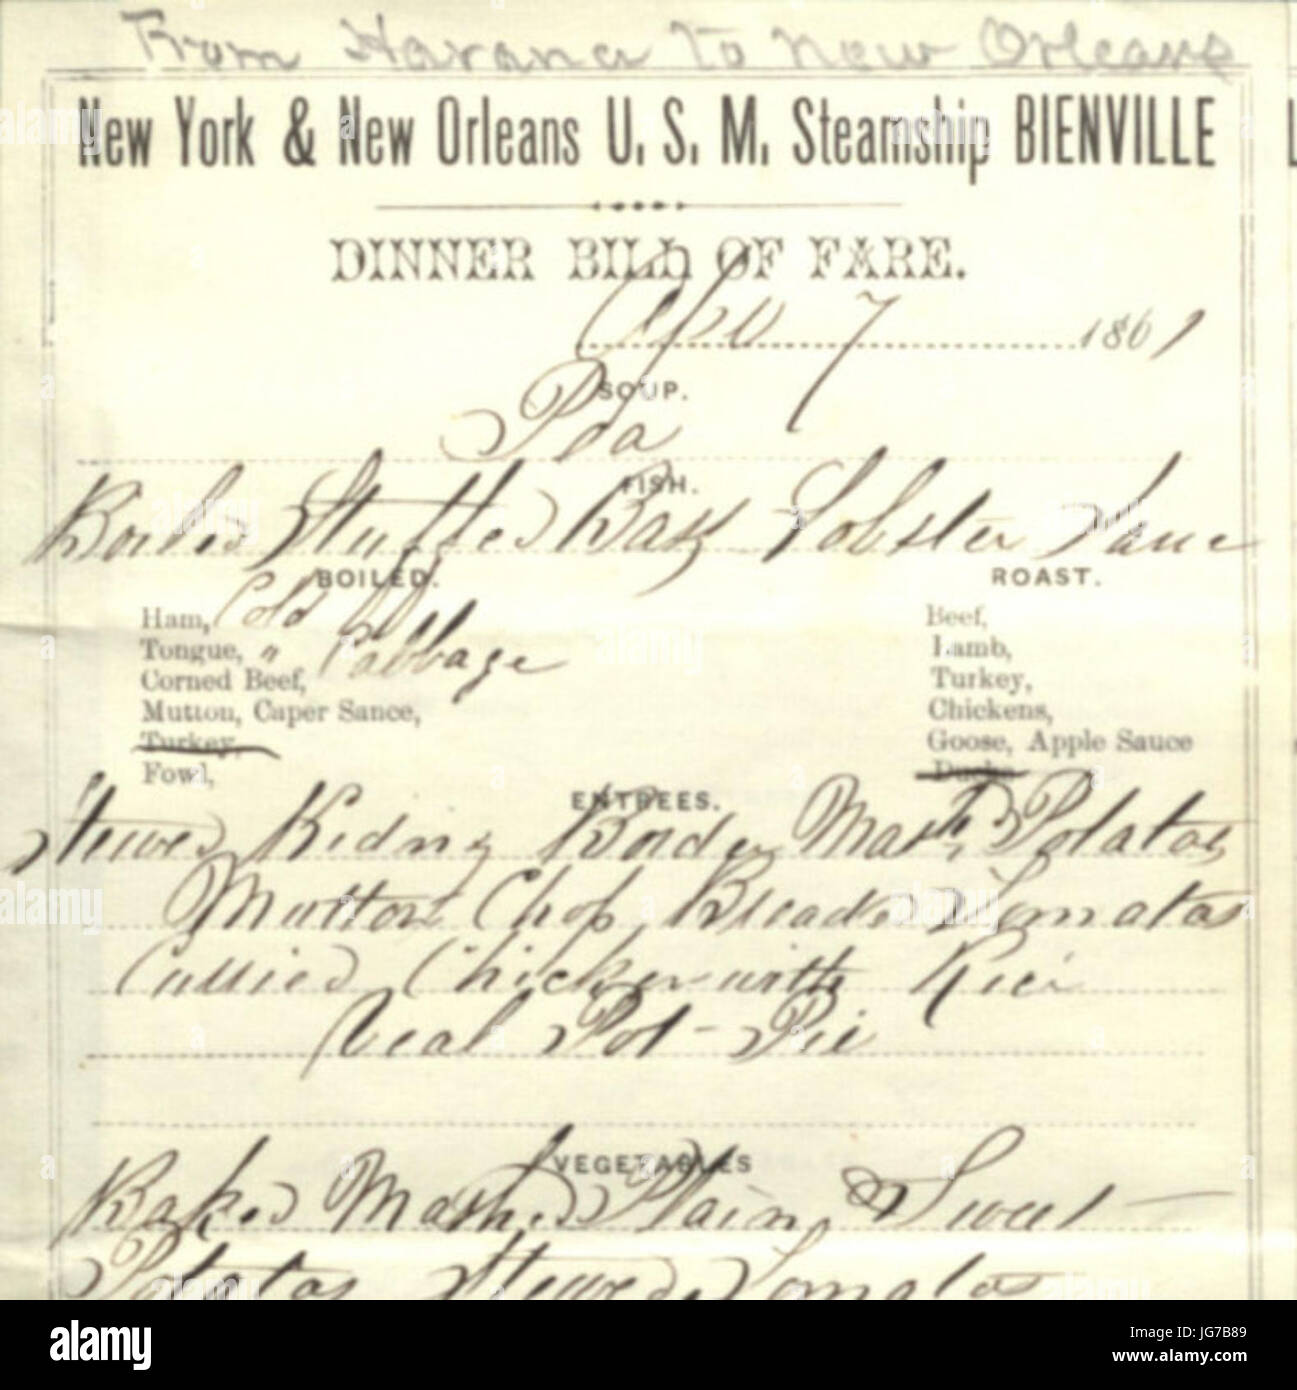 From Havana to New Orleans
New York & New Orleans U. S. M. Steamship BIENVILLE
DINNER BILL OF FARE.
Apl 7 1861
SOUP.
Pea
FISH.
Boiled Stuffed Bass Lobster Sauce
BOILED.
Ham, Cold
Tongue, " Cabbage
Corned Beef,
Mutton, Caper Sance,
Turkey,
Fowl,
ROAST.
Beef,
Lamb,
Turkey,
Chickens,
Goose, Apple Sauce
Ducks
ENTREES.
Stewed Kidny Border Mashd Potatoes
Mutton Chop Breaded Tomatoes
Curried Chicken with Rice
Veal Pot-Pie
VEGETABLES
Baked Mashed Plain & Sweet
Potatoes Stewed Tomatoes
alamy
Image ID: JG7B89
www.alamy.com